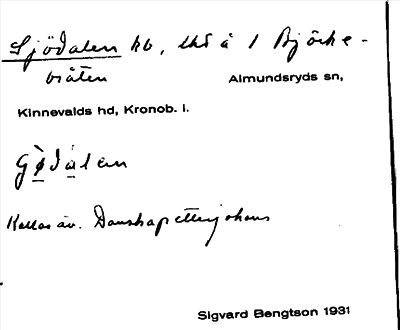 Sjödalen hb, thd å 1 Björke-
bråten Almundsryds sn,
Kinnevalds hd, Kronob. l.
Gø̀dálen
Kallas äv. Danskapettersjohans
Sigvard Bengtson 1931